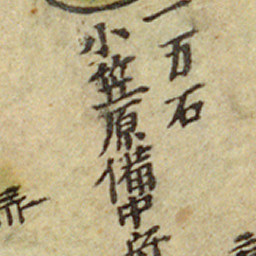 一万石
小笠原備中守